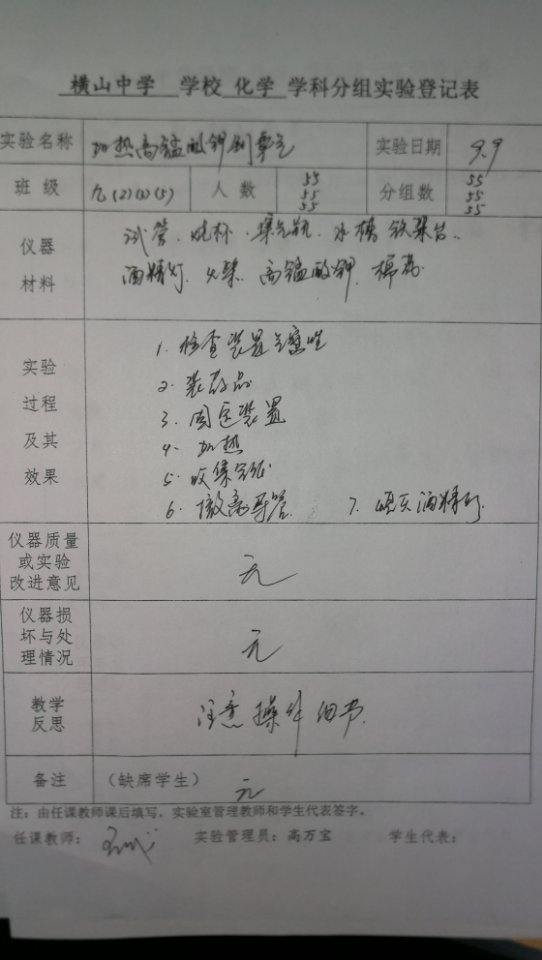 横山中学 学校 化学 学科分组实验登记表
实验名称 加热高锰酸钾制氧气 实验日期 9.9
班级 九(2)(3)(5) 人数 55 55 55 分组数 55 55 55
仪器材料
试管、烧杯、集气瓶、水槽、铁架台、
酒精灯、火柴、高锰酸钾、棉花
实验过程及其效果
1. 检查装置气密性
2. 装药品
3. 固定装置
4. 加热
5. 收集气体
6. 撤离导管 7. 熄灭酒精灯
仪器质量或实验改进意见 无
仪器损坏与处理情况 无
教学反思 注意操作细节.
备注 (缺席学生) 无
注：由任课教师课后填写，实验室管理教师和学生代表签字。
任课教师： 实验管理员：高万宝 学生代表：